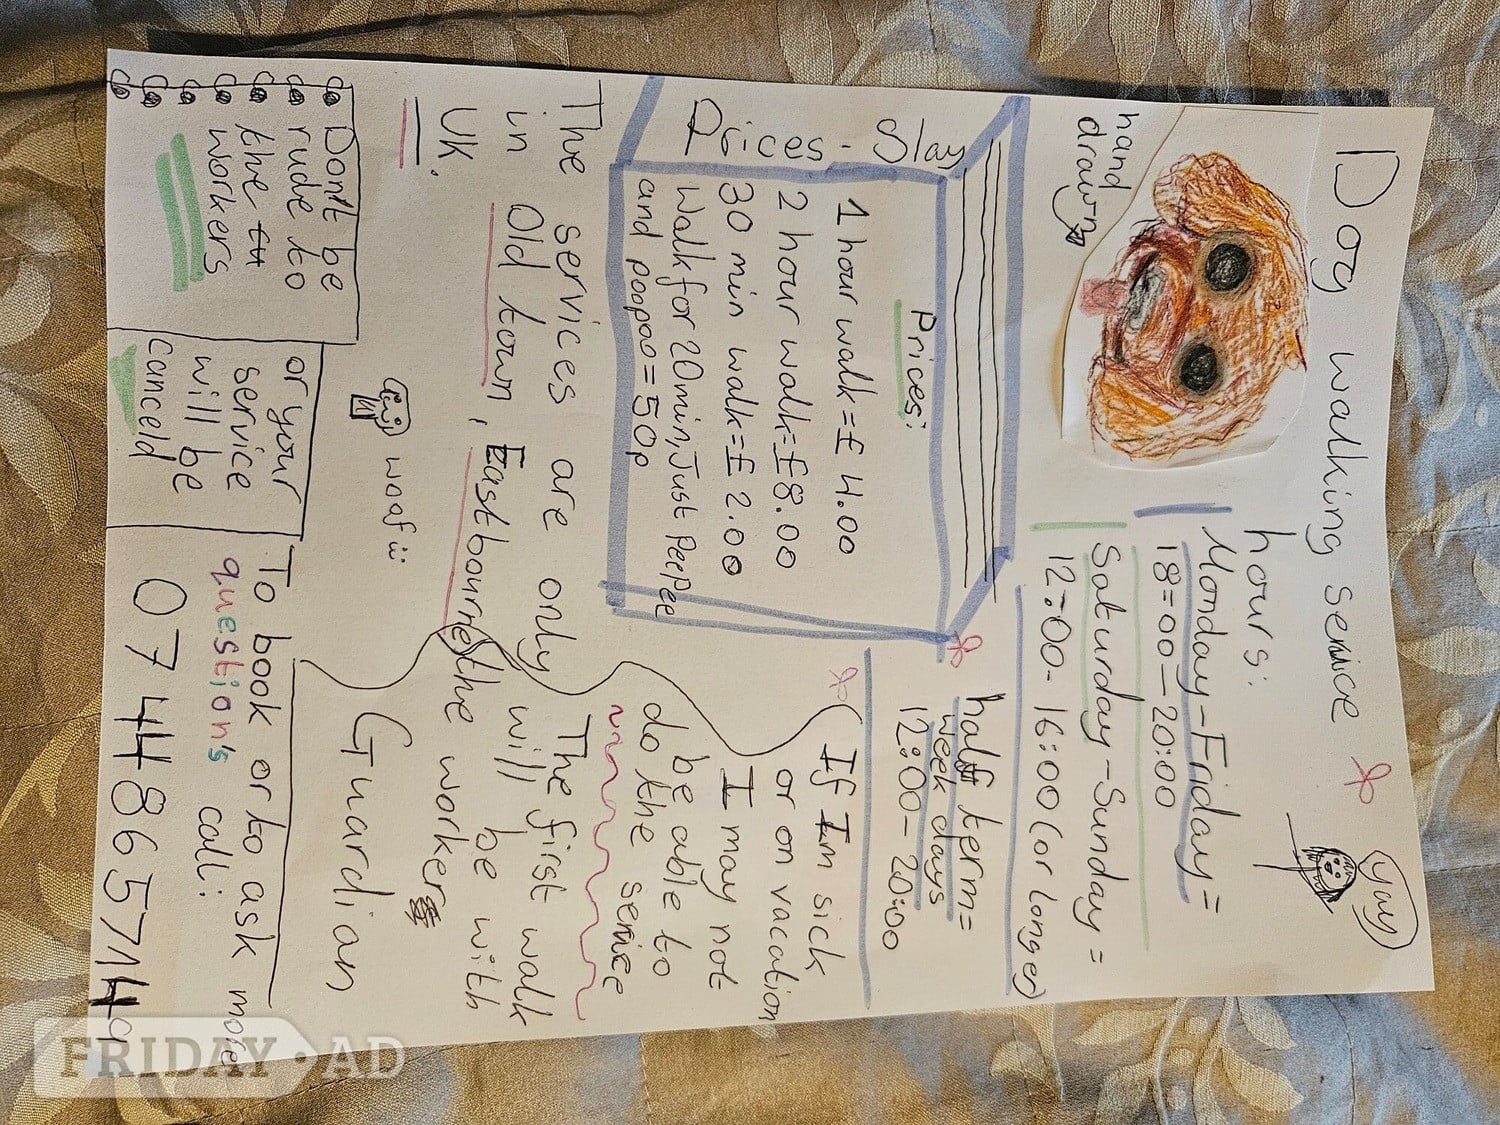 Dog walking service
yay
hand
drawn
hours:
Monday-Friday=
18:00-20:00
Saturday-Sunday=
12:00-16:00 (or longer)
half term=
week days
12:00-20:00
Prices - Slay
Prices:
1 hour walk=£4.00
2 hour walk=£8.00
30 min walk=£2.00
Walk for 20min, Just PeePee
and poopoo=50p
If Im sick
or on vacation
I may not
be able to
do the service
The services are only
in Old town, Eastbourne
UK.
The first walk
will be with
the worker
Guardian
woof
Don't be
rude to
the
workers
or your
service
will be
canceld
To book or to ask more
question's call:
07448657149
FRIDAY-AD